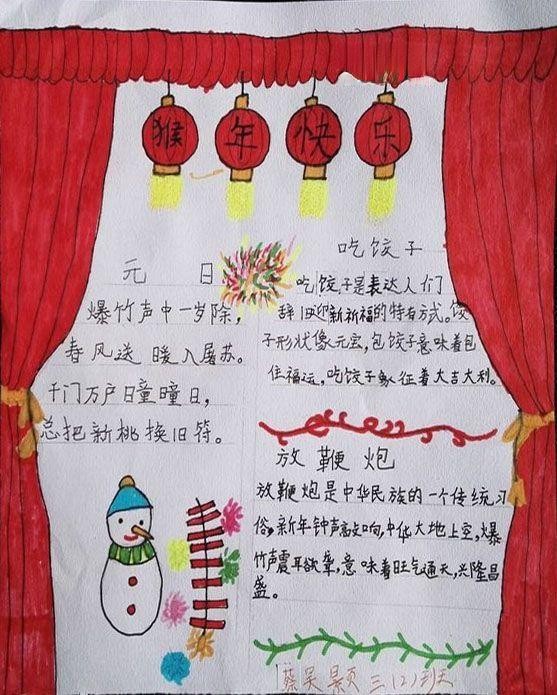 猴年快乐
元 日
爆竹声中一岁除,
春风送暖入屠苏。
千门万户曈曈日,
总把新桃换旧符。
吃饺子
吃饺子是表达人们
辞旧迎新祈福的特有方式。饺
子形状像元宝,包饺子意味着包
住福运,吃饺子象征着大吉大利。
放鞭炮
放鞭炮是中华民族的一个传统习
俗,新年钟声敲响,中华大地上空,爆
竹声震耳欲聋,意味着旺气通天,兴隆昌
盛。
蔡吴颢 三(2)班